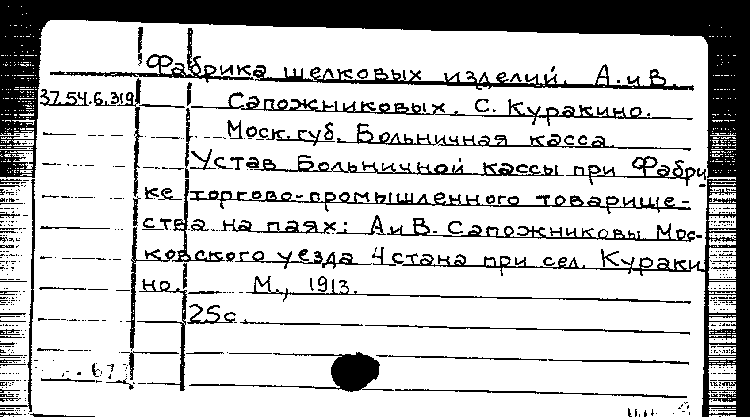 Фабрика шелковых изделий. А. и В.
37.54.6.319 Сапожниковых. С. Куракино.
Моск. губ. Больничная касса.
Устав Больничной кассы при Фабри
ке торгово-промышленного товарище-
ства на паях: А и В. Сапожниковы Мос-
ковского уезда 4 стана при сел. Кураки
но. М., 1913.
25с.